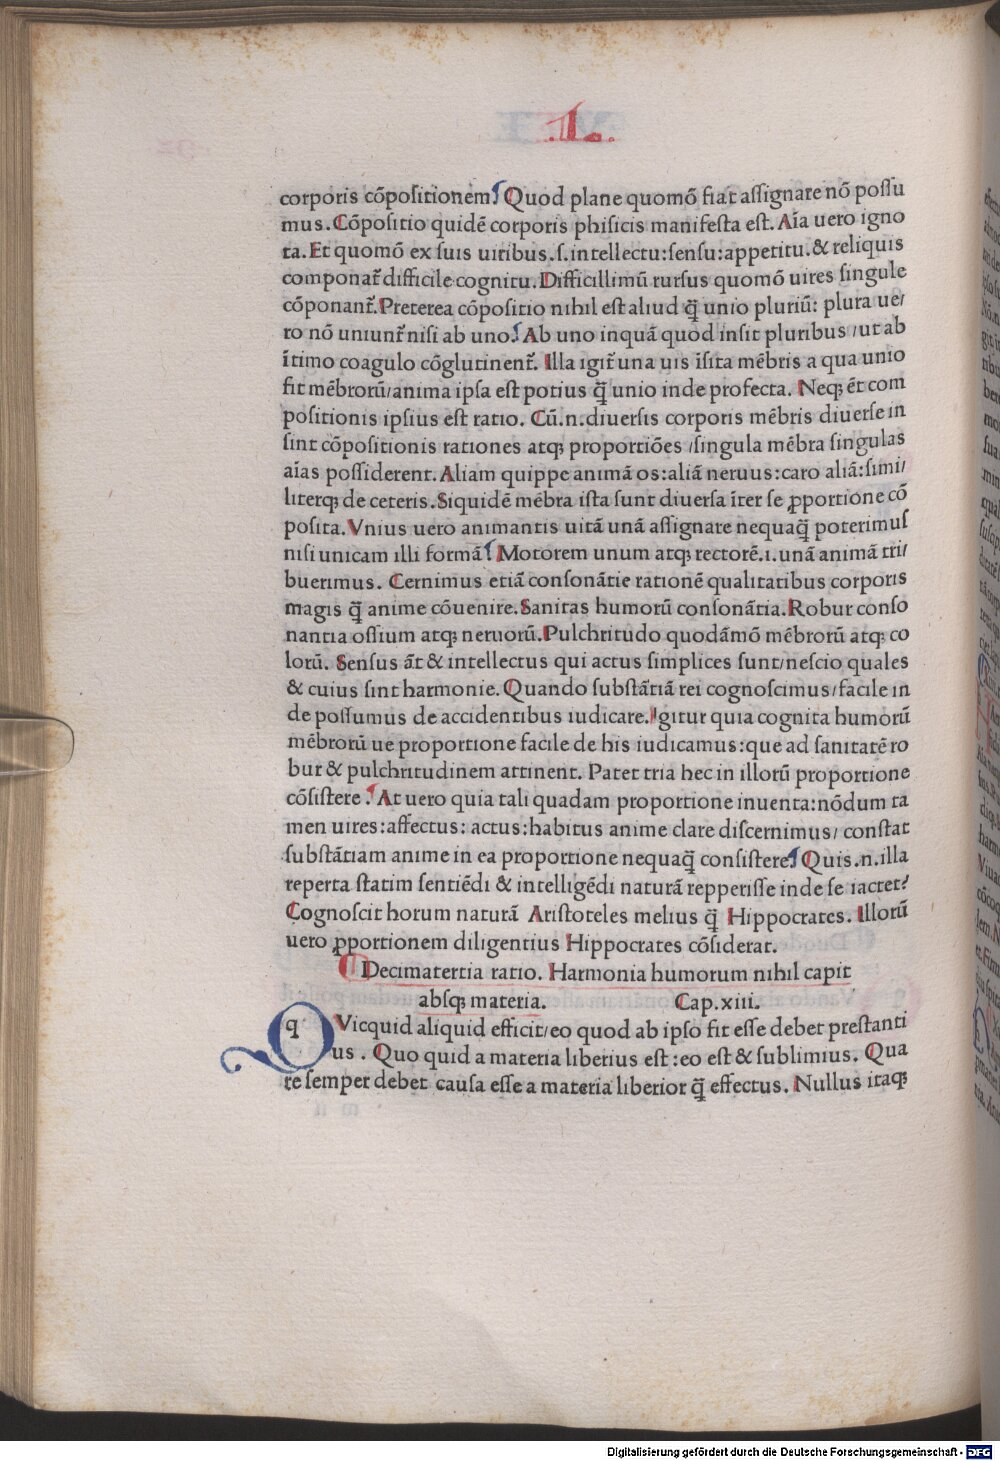 .L.
corporis cōpositionem Quod plane quomō fiat assignare nō possu
mus. Cōpositio quidē corporis phisicis manifesta est. Aīa uero igno
ta. Et quomō ex suis uiribus .s. intellectu: sensu: appetitu. & reliquis
componat̄ difficile cognitu. Difficillimū rursus quomō uires singule
cōponant̄. Preterea cōpositio nihil est aliud q̄ unio pluriū: plura ue/
ro nō uniunt̄ nisi ab uno. Ab uno inquā quod insit pluribus / ut ab
ītimo coagulo cōglutinent̄. Illa igit̄ una uis īsita mēbris a qua unio
fit mēbrorū/ anima ipsa est potius q̄ unio inde profecta. Neq; ēt com
positionis ipsius est ratio. Cū .n. diuersis corporis mēbris diuerse in
sint cōpositionis rationes atq; proportiōes / singula mēbra singulas
aīas possiderent. Aliam quippe animā os: aliā neruus: caro aliā: simi/
literq; de ceteris. Siquidē mēbra ista sunt diuersa īter se ꝓportione cō
posita. Vnius uero animantis uitā unā assignare nequaq̄ poterimus
nisi unicam illi formā Motorem unum atq; rectorē .i. unā animā tri/
buerimus. Cernimus etiā consonātie rationē qualitatibus corporis
magis q̄ anime cōuenire. Sanitas humorū consonātia. Robur conso
nantia ossium atq; neruorū. Pulchritudo quodāmō mēbrorū atq; co
lorū. Sensus āt & intellectus qui actus simplices sunt/ nescio quales
& cuius sint harmonie. Quando substātiā rei cognoscimus / facile in
de possumus de accidentibus iudicare. Igitur quia cognita humorū
mēbrorū ue proportione facile de his iudicamus: que ad sanitatē ro
bur & pulchritudinem attinent. Patet tria hec in illorū proportione
cōsistere. At uero quia tali quadam proportione inuenta: nōdum ta
men uires: affectus: actus: habitus anime clare discernimus/ constat
substātiam anime in ea proportione nequaq̄ consistere Quis .n. illa
reperta statim sentiēdi & intelligēdi naturā repperisse inde se iactet?
Cognoscit horum naturā Aristoteles melius q̄ Hippocrates. Illorū
uero ꝓportionem diligentius Hippocrates cōsiderat.
Decimatertia ratio. Harmonia humorum nihil capit
absq; materia. Cap. xiii.
QVicquid aliquid efficit/ eo quod ab ipso fit esse debet prestanti
us. Quo quid a materia liberius est: eo est & sublimius. Qua
re semper debet causa esse a materia liberior q̄ effectus. Nullus itaq;
Digitalisierung gefördert durch die Deutsche Forschungsgemeinschaft - DFG